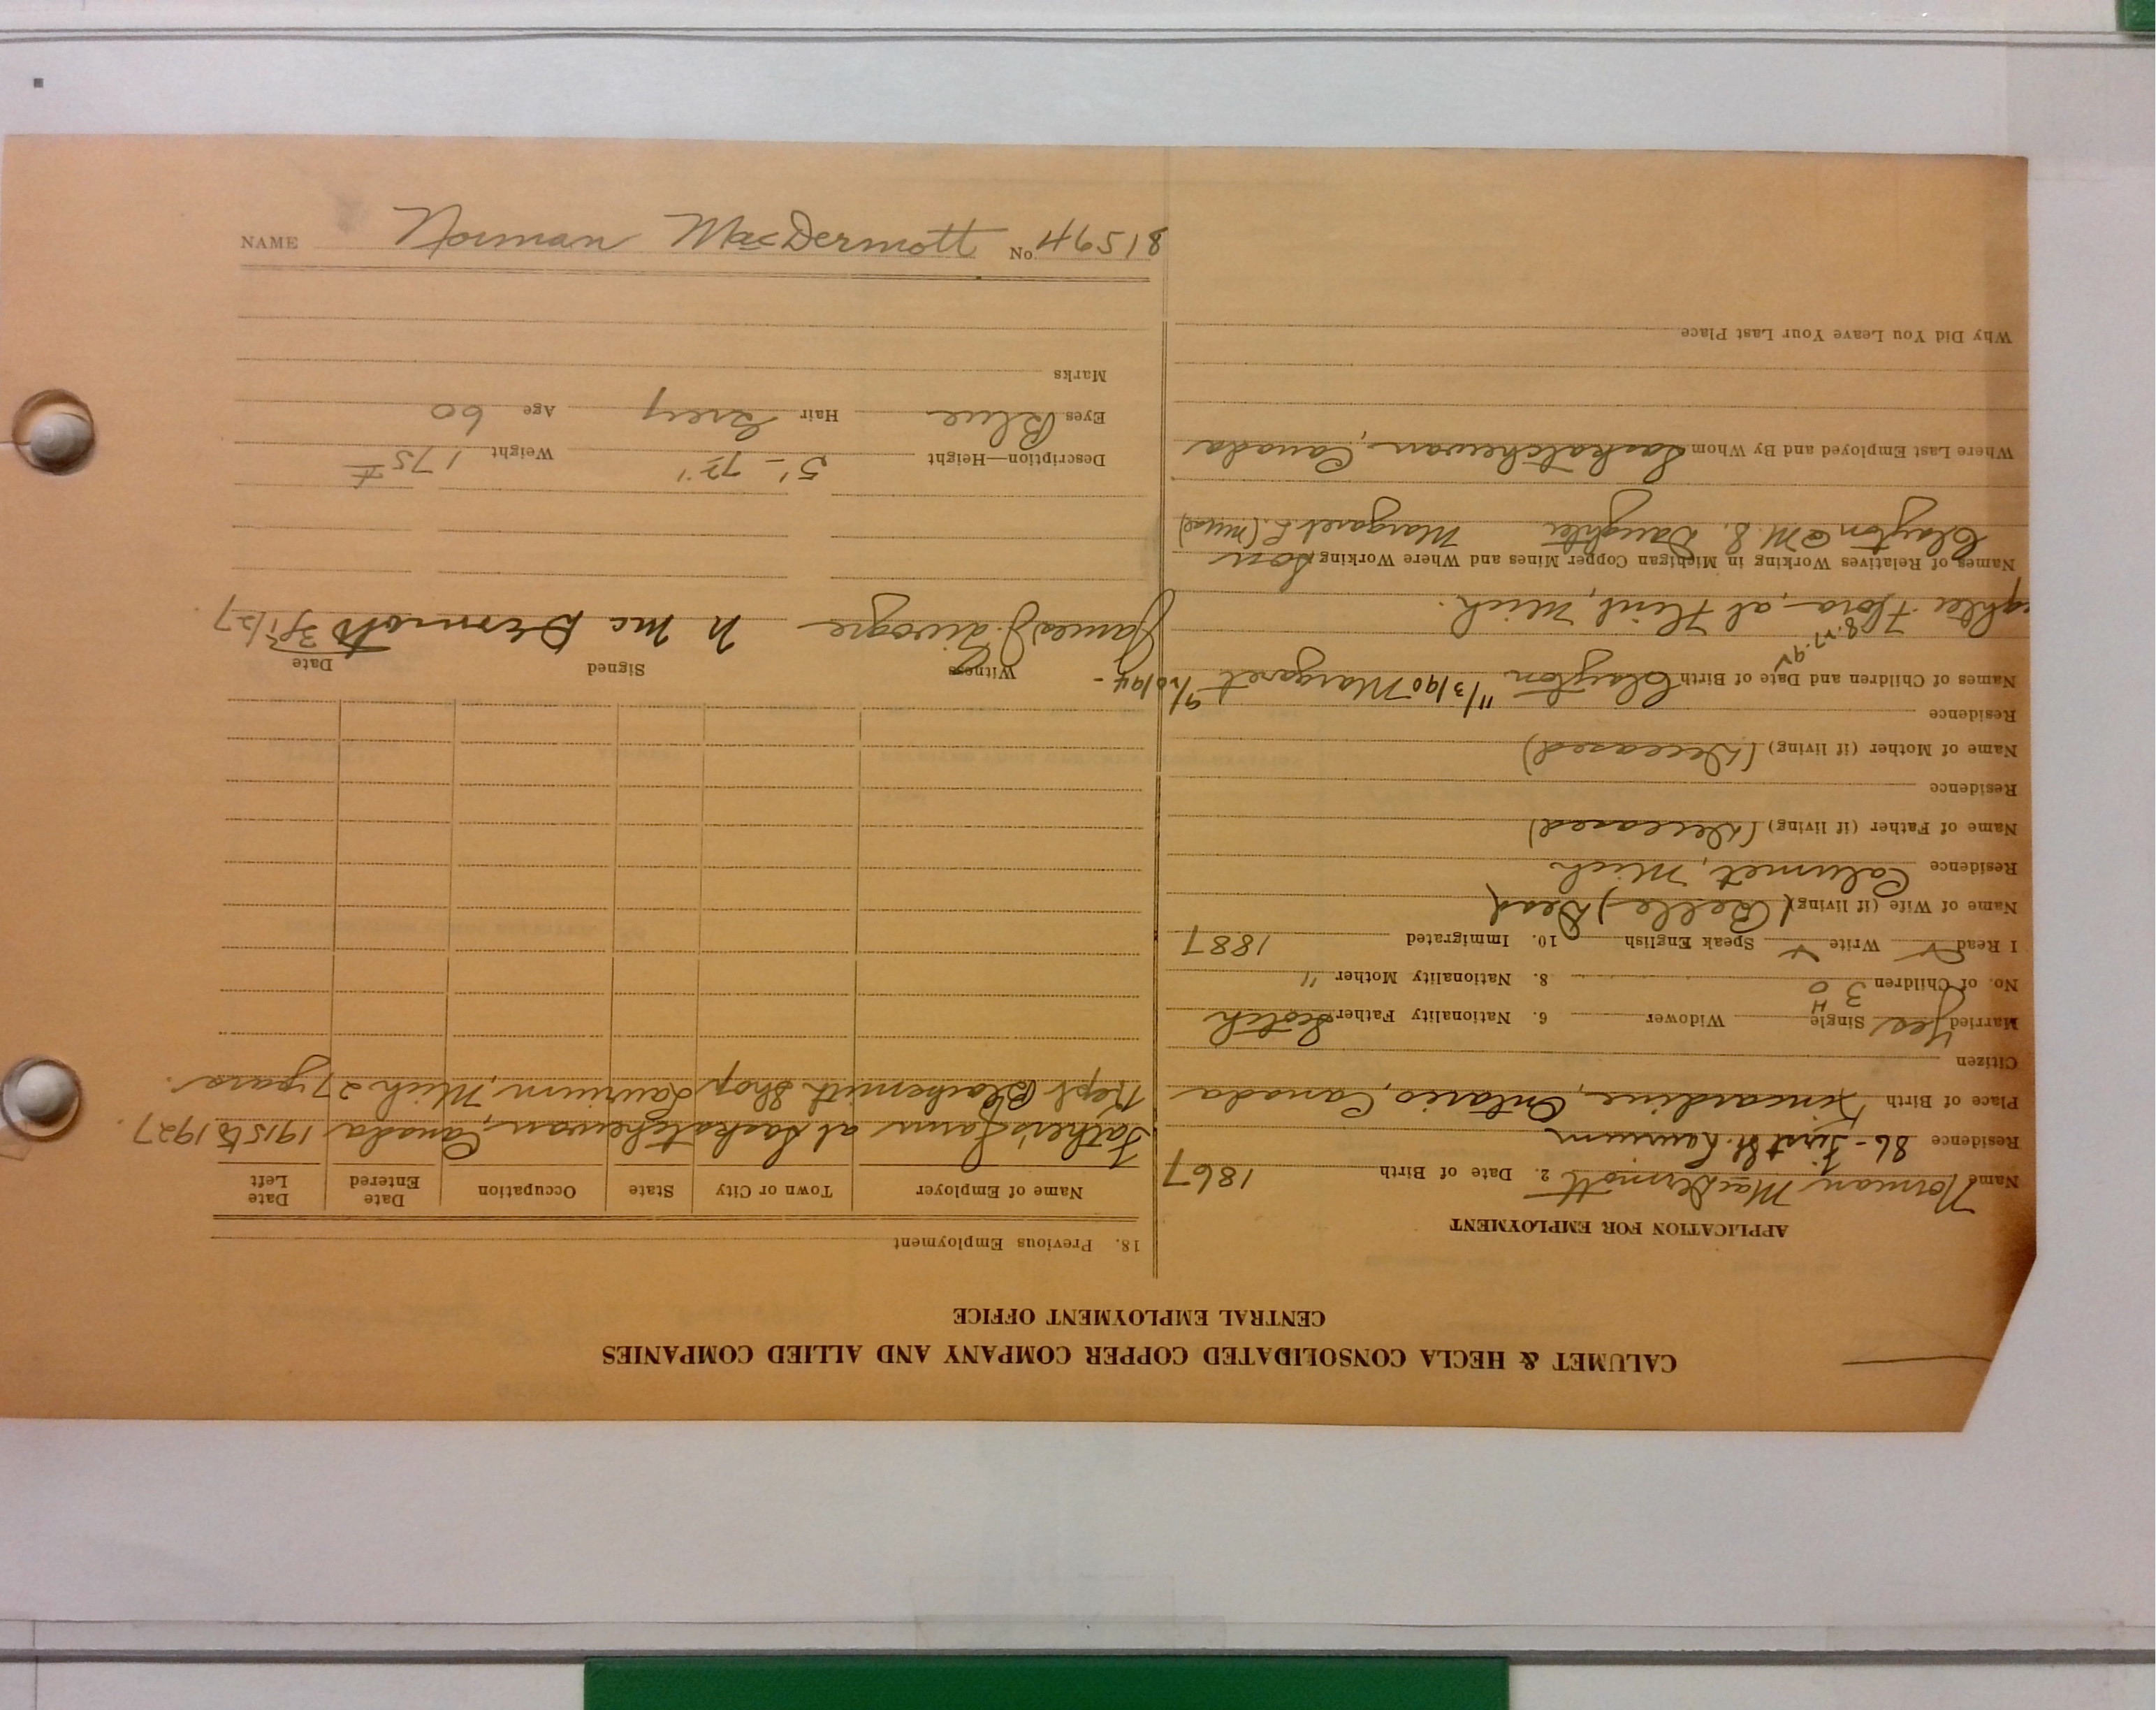 NAME Norman MacDermott No. 46518
CALUMET & HECLA CONSOLIDATED COPPER COMPANY AND ALLIED COMPANIES
CENTRAL EMPLOYMENT OFFICE
APPLICATION FOR EMPLOYMENT
Name Norman MacDermott 2. Date of Birth 1867
Residence 86 - First St. Laurium
Place of Birth Kincardine, Ontario, Canada
Citizen
Married Yes Single Widower 6. Nationality Father Scotch
No. of Children 3 8. Nationality Mother "
I Read Write Speak English 10. Immigrated 1887
Name of Wife (if living) (Belle) Dead
Residence Calumet, Mich
Name of Father (if living) (Deceased)
Residence
Name of Mother (if living) (Deceased)
Residence
Names of Children and Date of Birth Clayton 11/3/90 Margaret
Flora, at Flint, Mich.
Names of Relatives Working in Michigan Copper Mines and Where Working Son
Clayton Daughter Margaret L. (nurse)
Where Last Employed and By Whom Saskatchewan, Canada
Why Did You Leave Your Last Place
18. Previous Employment
Name of Employer Town or City State Occupation Date Entered Date Left
Father's farm at Saskatchewan, Canada 1915 to 1927
Kept Blacksmith Shop Laurium, Mich 27 years.
Witness Signed Date
James N Mc Dermott
Description—Height 5'- 7½" Weight 175 #
Eyes Blue Hair Grey Age 60
Marks